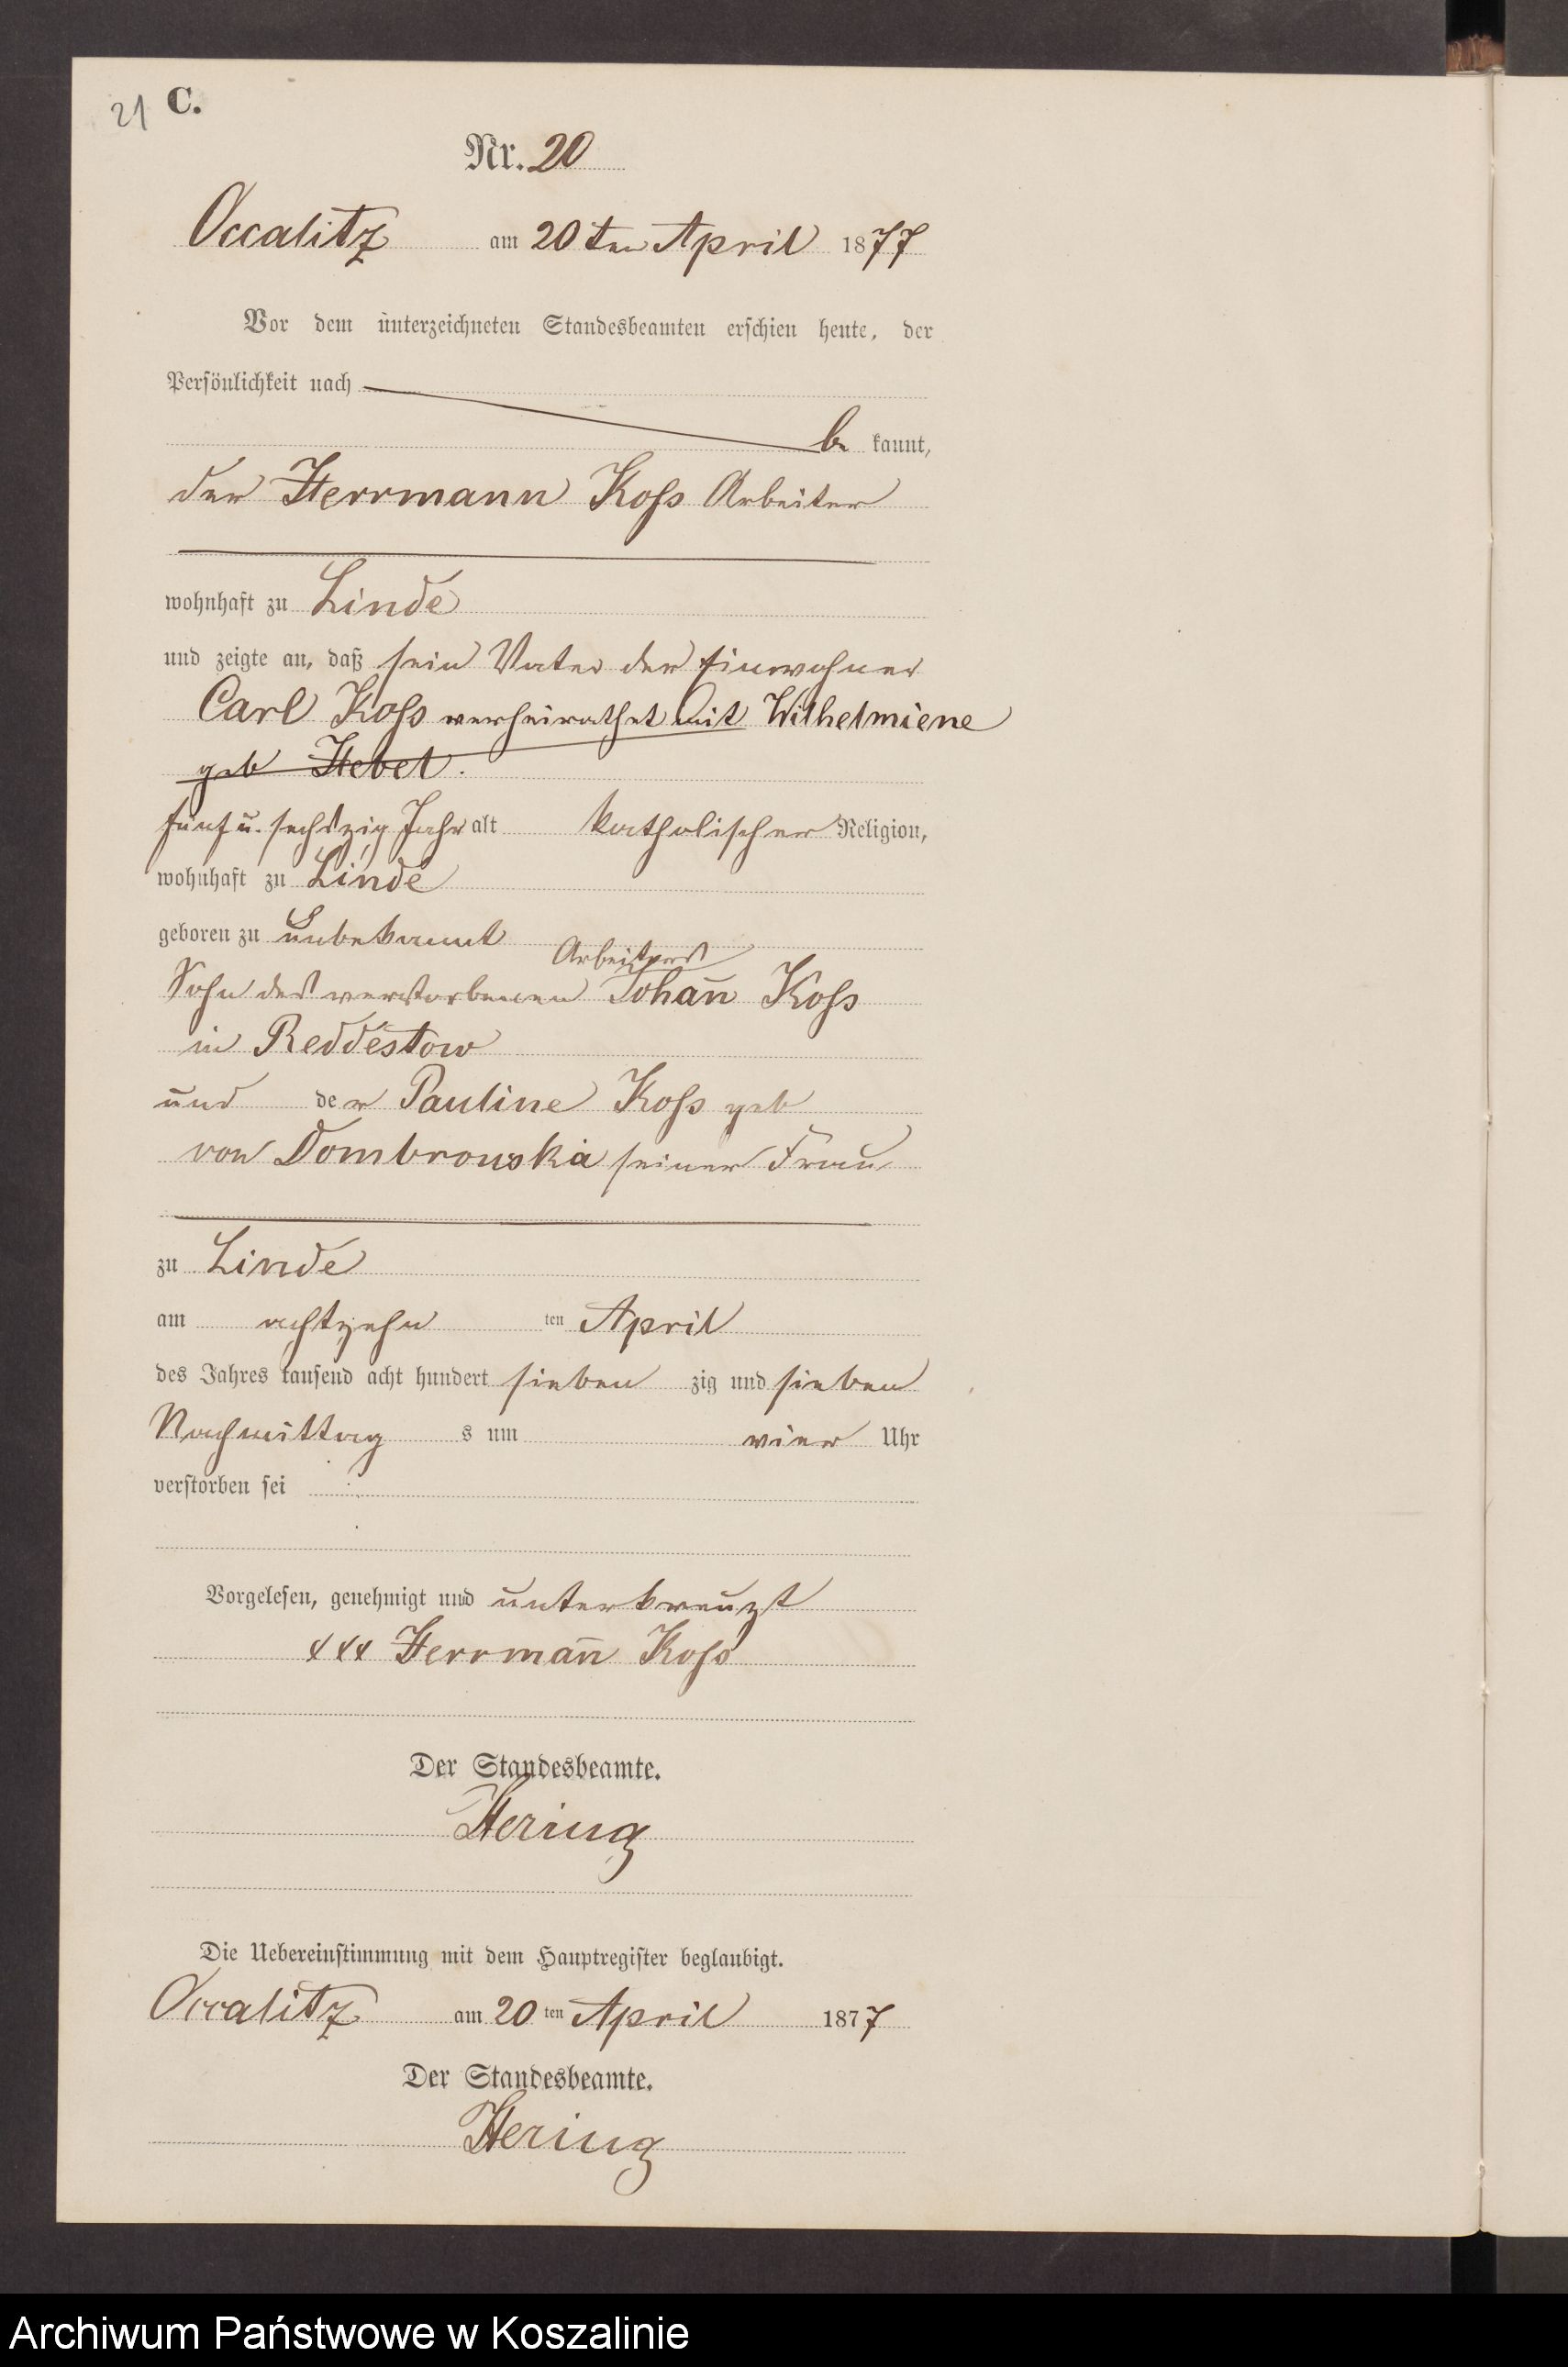 21 C.
Nr. 20
Occalitz am 20ten April 1877
Vor dem unterzeichneten Standesbeamten erschien heute, der
Persönlichkeit nach
be kannt,
der Herrmann Koss Arbeiter
wohnhaft zu Linde
und zeigte an, daß sein Vater der Einwohner
Carl Koss verheirathet mit Wilhelmiene
geb Hebel.
fünf u. sechszig Jahr alt katholischer Religion,
wohnhaft zu Linde
geboren zu unbekannt
Arbeiters
Sohn des verstorbenen Johan̄ Koss
in Reddestow
und der Pauline Koss geb
von Dombrouska seiner Frau
zu Linde
am achtzehn ten April
des Jahres tausend acht hundert sieben zig und sieben
Nachmittag s um vier Uhr
verstorben sei
Vorgelesen, genehmigt und unterkreuzt
xxx Herrman̄ Koss
Der Standesbeamte.
Hering
Die Uebereinstimmung mit dem Hauptregister beglaubigt.
Occalitz am 20 ten April 1877
Der Standesbeamte.
Hering
Archiwum Państwowe w Koszalinie